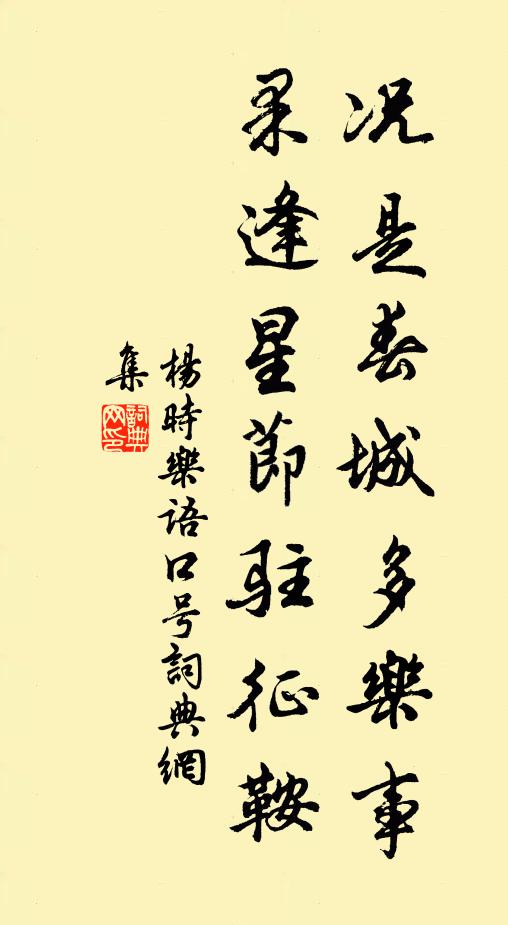 况是春城多樂事
果逢星節駐征鞍
楊時樂語口号詞典網
集
詞典網印